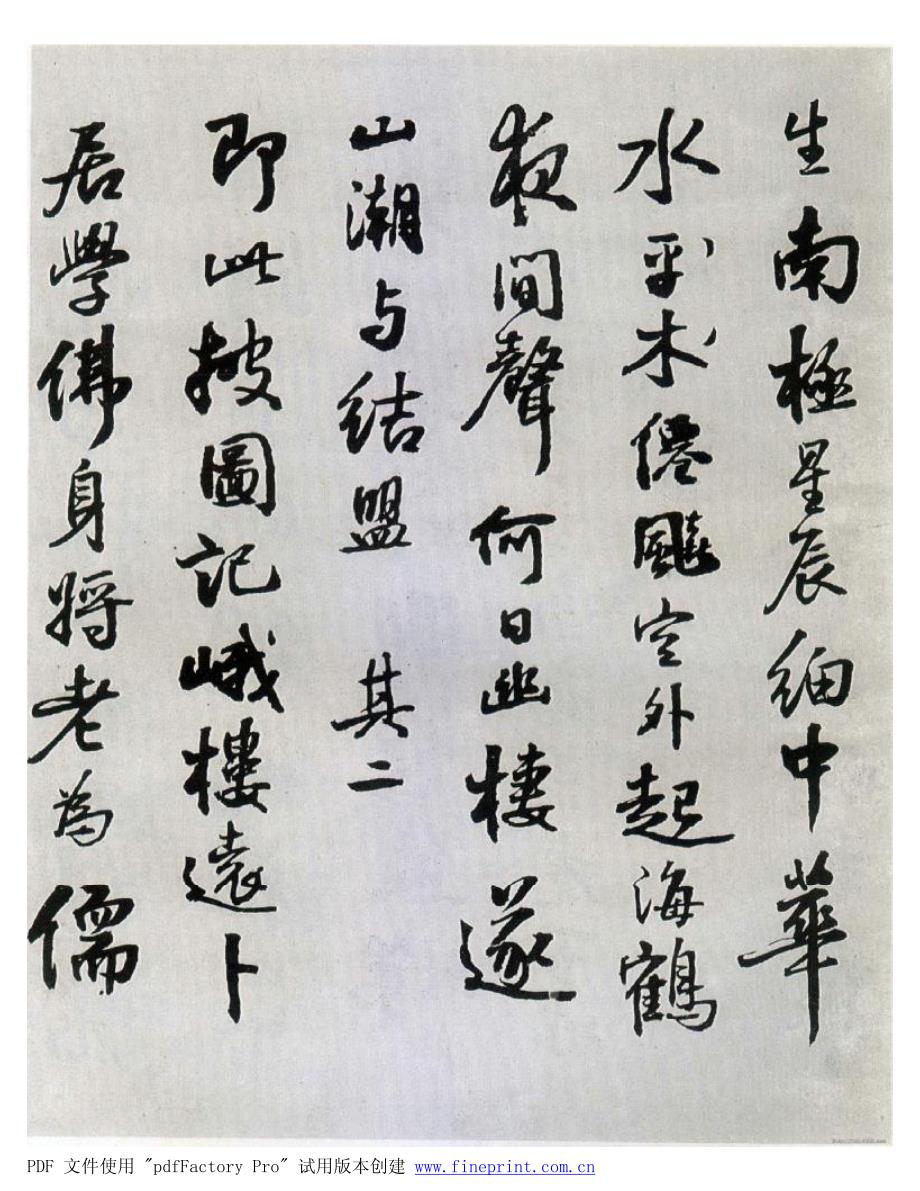 生南極星辰細中華
水平木僊颷空外起海鶴
夜間聲何日幽棲遂
山潮与結盟 其二
即此披圖記峨樓遠卜
居學佛身將老為儒
PDF 文件使用 "pdfFactory Pro" 试用版本创建 www.fineprint.com.cn